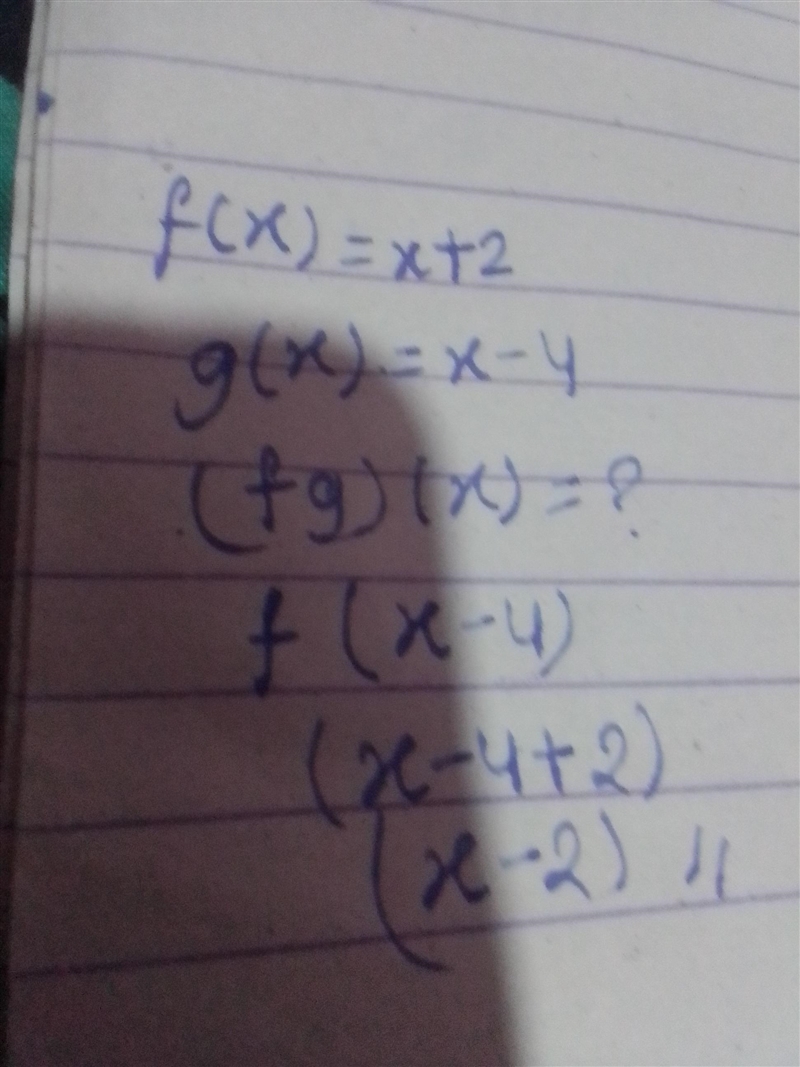 f(x) = x+2
g(x) = x-4
(fg)(x) = ?
f(x-4)
(x-4+2)
(x-2) 11